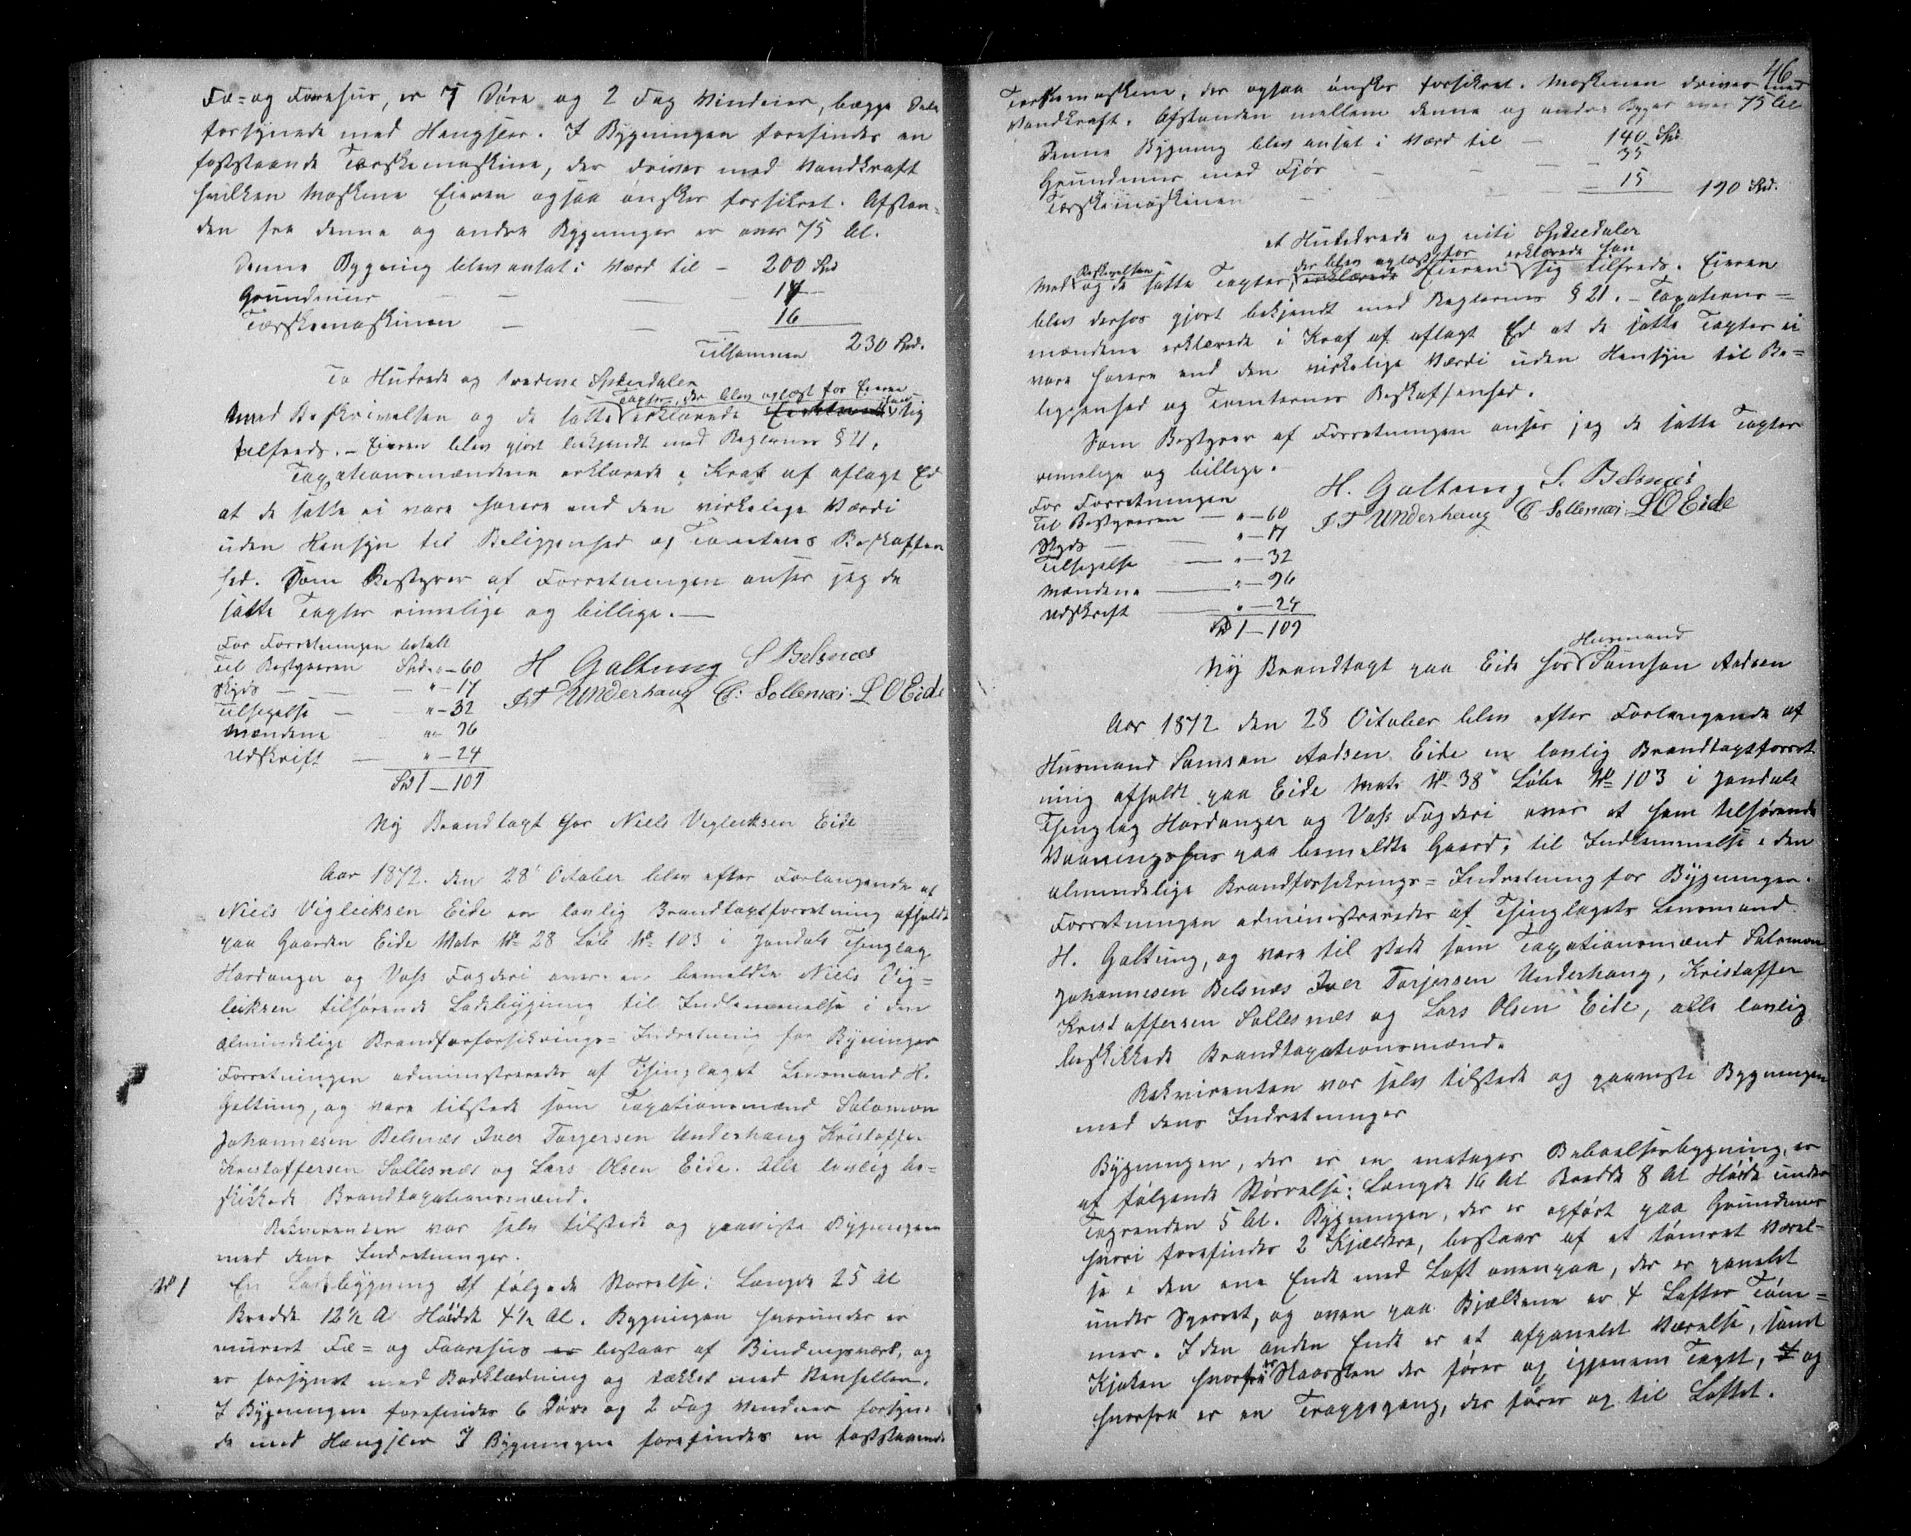 Fæ- og Foarehus, er 7 Døre og 2 Fag Vinduer, begge Dele
forsynede med Hengsler. I Bygningen forefindes en
faststaaende Tærskemaskine, der drives med Vandkraft
hvilken Maskine Eieren ogsaa ønsker forsikret. Afstan-
den fra denne og andre Bygninger er over 75 Al.
Denne Bygning blev ansat i Værd til – 200 Spd
Grundmur – – 14
Tærskemaskinen – – 16
Tilsammen 230 Spd.
To Hudrede og tredeve Spesiedaler
Taxter, der blev oplæst for Eieren
Med Beskrivelsen og de satte erklærede han sig
tilfreds. – Eieren blev gjort bekjendt med Reglernes § 21.
Taxationsmændene erklærede i Kraf af aflagt Ed
at de satte ei vare høiere end den virkelige Værdi
uden Hensyn til Beliggenhed og Tomtens Beskaffen
hed. Som Bestyrer af Forretningen anser jeg de
satte Taxter rimelige og billige. —
For Forretningen betalt
Til Bestyreren Spd. " – 60
Skyds – – " – 17
Tilsigelse – " – 32
Mændene " 96
Udskrift — " – 24
Spd 1 – 109
H Galtung S Belsnæs
I T Underhaug C. Sollesnæs. L O Eide
Ny Brandtaxt hos Niels Vigleiksen Eide
Aar 1872. den 28 October blev efter Forlangende af
Niels Vigleiksen Eide en lovlig Brandtaxtforretning afholdt
paa Gaarden Eide Matr No 28 Løbe No 103 i Jondals Thinglag
Hardanger og Voss Fogderi over en bemeldte Niels Vig-
leiksen tilhørende Ladebygning til Indlemmelse i den
almindelige Brandforsikrings-Indretning for Bygninger
Forretningen administreredes af Thinglaget Lensmand H.
Galtung, og vare tilstede som Taxationsmænd Salomon
Johannesen Belsnæs Iver Torjersen Underhaug Kristoffer
Kristoffersen Sollesnæs og Lars Olsen Eide. Alle lovlig be-
skikkede Brandtaxationsmænd.
Rekvirenten var selv tilstede og paaviste Bygningen
med dens Indretninger.
No 1 En Ladebygning af følgede Størrelse: Længde 25 Al
Bredde 12½ Al Høide 4½ Al. Bygningen hvorunder er
muret Fæ- og Faarehus bestaar af Bindingsværk, og
er forsynet med Bordklædning og tækket med Stenheller.
I Bygningen forefindes 6 Døre og 2 Fag Vinduer forsyn-
de med Hængsler I Bygningen forefindes en faststaaende
46
Tærskemaskine, der ogsaa ønskes forsikret. Maskinen drives med
Vandkraft. Afstanden mellem denne og andre Bygn er over 75 Al.
Denne Bygning blev ansat i Værd til – 140 Spd
Grundmur med Fjør – – – 35
Tærskemaskinen – – – 15 190 Spd.
et Hundrede og niti Spesiedaler
Beskrivelsen der blev oplæst for erklærede han
Med og de satte Taxter, erklærede Eieren sig tilfreds. Eieren
blev derhos gjort bekjendt med Reglernes § 21. – Taxations-
mændene erklærede i Kraf af aflagt Ed at de satte Taxter ei
vare høiere end den virkelige Værdi uden Hensyn til Be-
liggenhed og Tomternes Beskaffenhed.
Som Bestyrer af Forretningen anser jeg de satte Taxter
rimelige og billige.
For Forretningen
Til Bestyreren – " – 60
Skyds — " – 17
Tilsigelse — " – 32
Mændene — " – 96
Udskrift — " – 24
Spd 1 – 109
H. Galtung S. Belsnæs
I T Underhaug C. Sollesnæs. L O Eide
Husmand
Ny Brandtaxt paa Eide hos Samson Aadsen
Aar 1872 den 28 October blev efter Forlangende af
Husmand Samson Aadsen Eide en lovlig Brandtaxtforret
ning afholdt paa Eide Matr No 38 Løbe No 103 i Jondals
Thinglag Hardanger og Voss Fogderi over et ham tilhørende
Vaaningshus paa bemeldte Gaard, til Indlemmelse i den
almindelige Brandforsikrings-Indretning for Bygninger.
Forretningen administreredes af Thinglagets Lensmand
H. Galtung, og vare til stede som Taxationsmænd Salomon
Johannesen Belsnæs Iver Torjersen Underhaug, Kristoffer
Kristoffersen Sollesnæs og Lars Olsen Eide, alle lovlig
beskikkede Brandtaxationsmænd.
Rekvirenten var selv tilstede og paaviste Bygningen
med dens Indretninger
Bygningen, der er en etages Beboelsesbygning, er
af følgende Størrelse: Længde 16 Al Bredde 8 Al Høide under
Tagrenden 5 Al. Bygningen, der er opført paa Grundmur
hvori forefindes 2 Kjældere, bestaar af et tømret Værel-
se i den ene Ende med Loft ovenpaa, der er panelet
under Sperret, og oven paa Bjælkene er 4 Lofter Tøm-
mer. I den anden Ende er et afpanelet Værelse, samt
Kjøken hvorfra er Skaarsten der fører op igjenem Taget, og
hvorfra er en Trappegang, der fører op til Loftet.